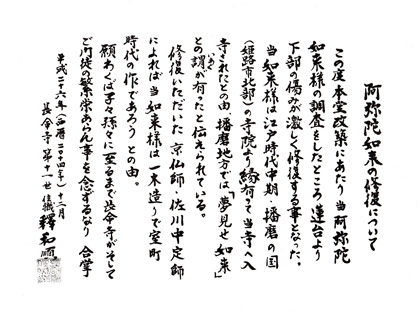 阿弥陀如来の修復について
この度本堂改築にあたり当阿弥陀
如来様の調査をしたところ蓮台より
下部の傷みが激しく修復する事となった。
当如来様は江戸時代中期・播磨の国
(姫路市北部)の寺院より縁有って当寺へ入
寺されたとの由 播磨地方では「夢見せ如来」
との謂が有ったと伝えられている。
修復いただいた京仏師・佐川中定師
によれば当如来様は一木造りで室町
時代の作であろうとの由。
願わくば子々孫々に至るまで長命寺がそして
ご門徒の繁栄あらん事を念ずるなり 合掌
平成二十六年(西暦二〇十四年)十二月
長命寺第十一世住職 釋和順